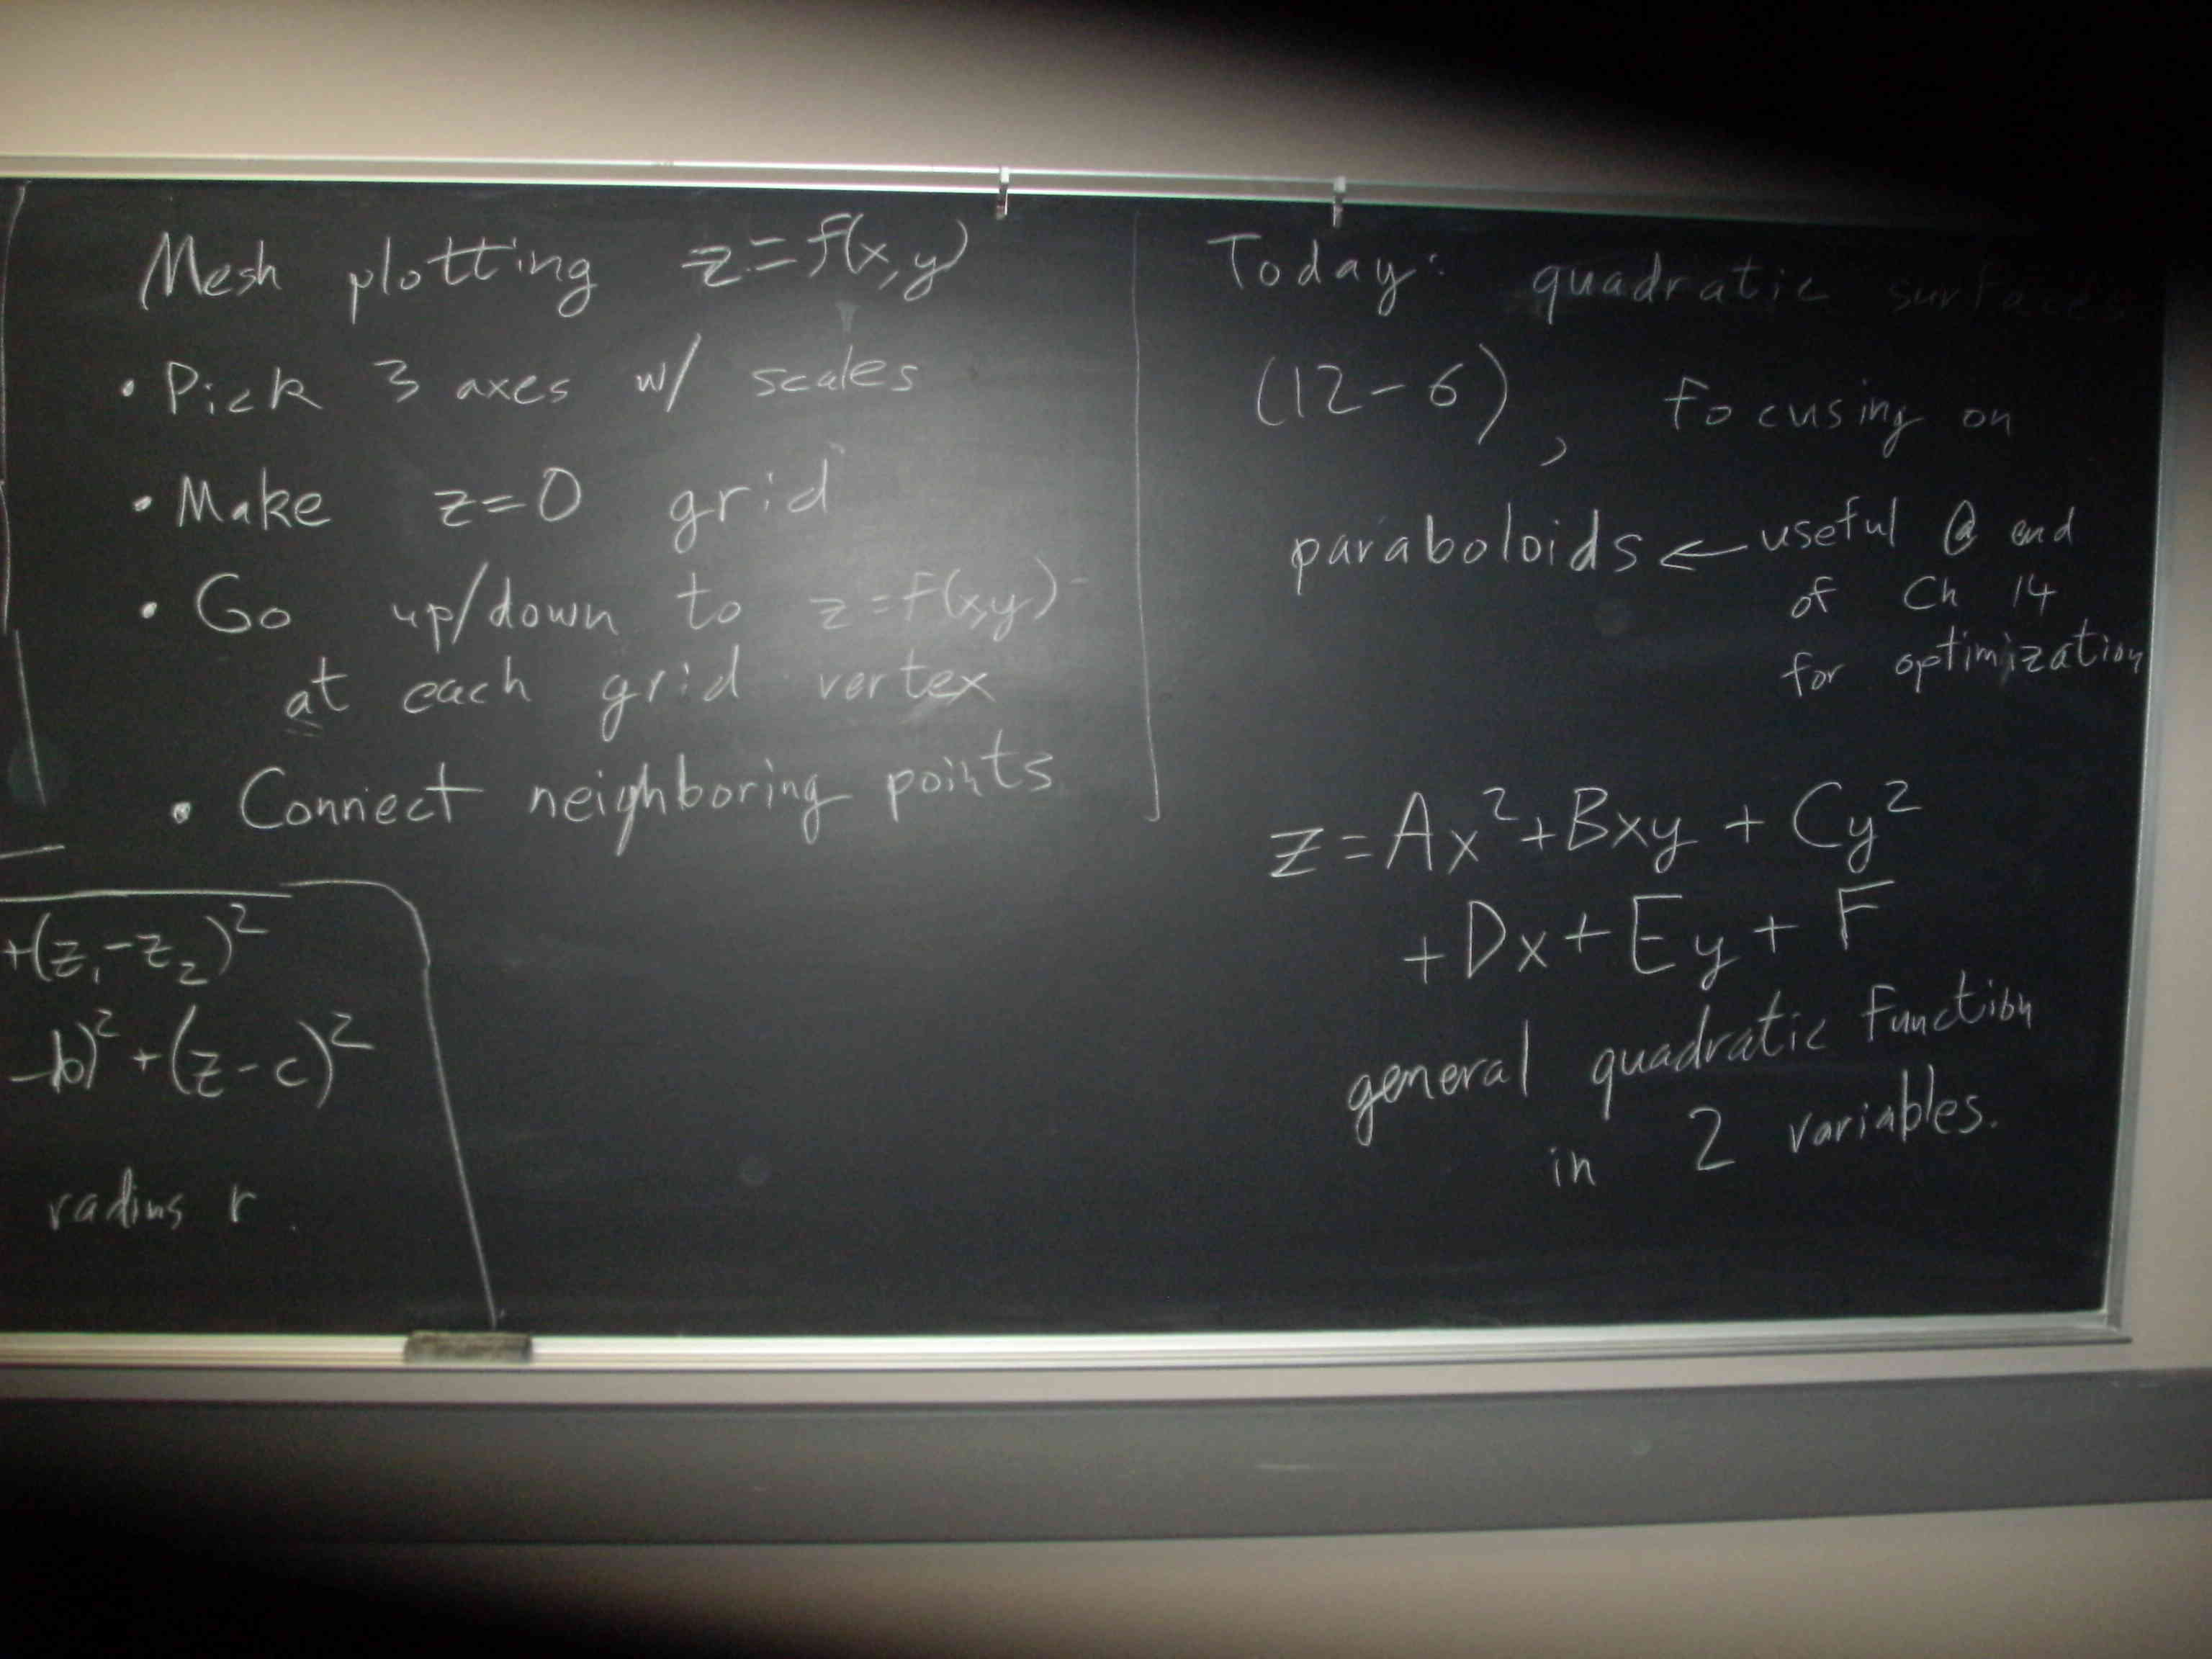 Mesh plotting z=f(x,y)
• Pick 3 axes w/ scales
• Make z=0 grid
• Go up/down to z=f(x,y)
at each grid vertex
• Connect neighboring points
+(z₁-z₂)²
-b)²+(z-c)²
radius r.
Today: quadratic surfaces
(12-6), focusing on
paraboloids ← useful @ end
of Ch 14
for optimization
z=Ax²+Bxy+Cy²
+Dx+Ey+F
general quadratic function
in 2 variables.